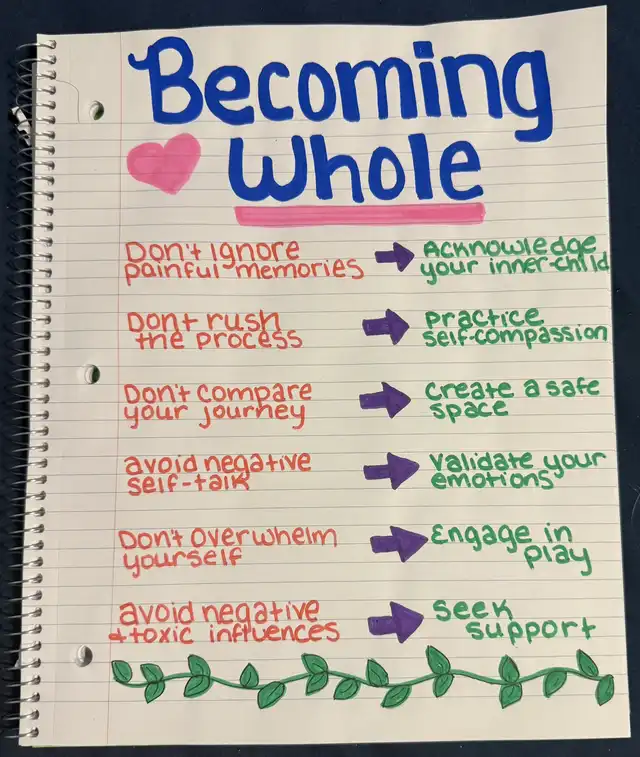 Becoming
Whole
Don't ignore
painful memories
Acknowledge
your inner-child
Don't rush
the process
Practice
self-compassion
Don't compare
your journey
Create a safe
space
avoid negative
self-talk
Validate your
emotions
Don't overwhelm
yourself
Engage in
play
avoid negative
+ toxic influences
Seek
support